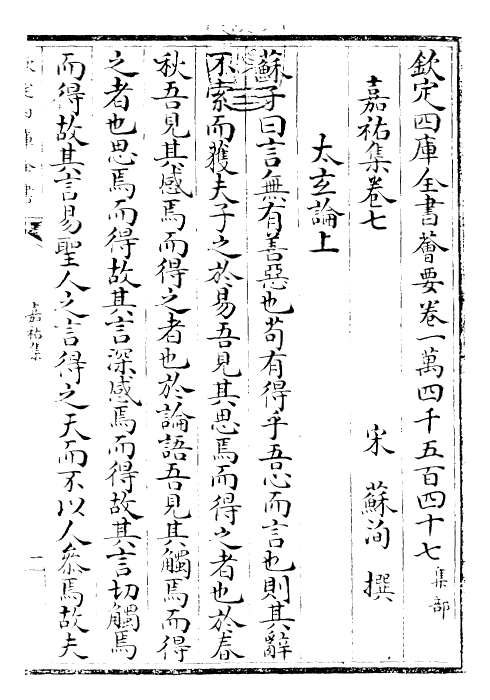 欽定四庫全書薈要卷一萬四千五百四十七集部
嘉祐集卷七
宋 蘇洵 撰
太玄論上
蘇子曰言無有善惡也苟有得乎吾心而言也則其辭
不索而獲夫子之於易吾見其思焉而得之者也於春
秋吾見其感焉而得之者也於論語吾見其觸焉而得
之者也思焉而得故其言深感焉而得故其言切觸焉
而得故其言易聖人之言得之天而不以人參焉故夫
嘉祐集
一